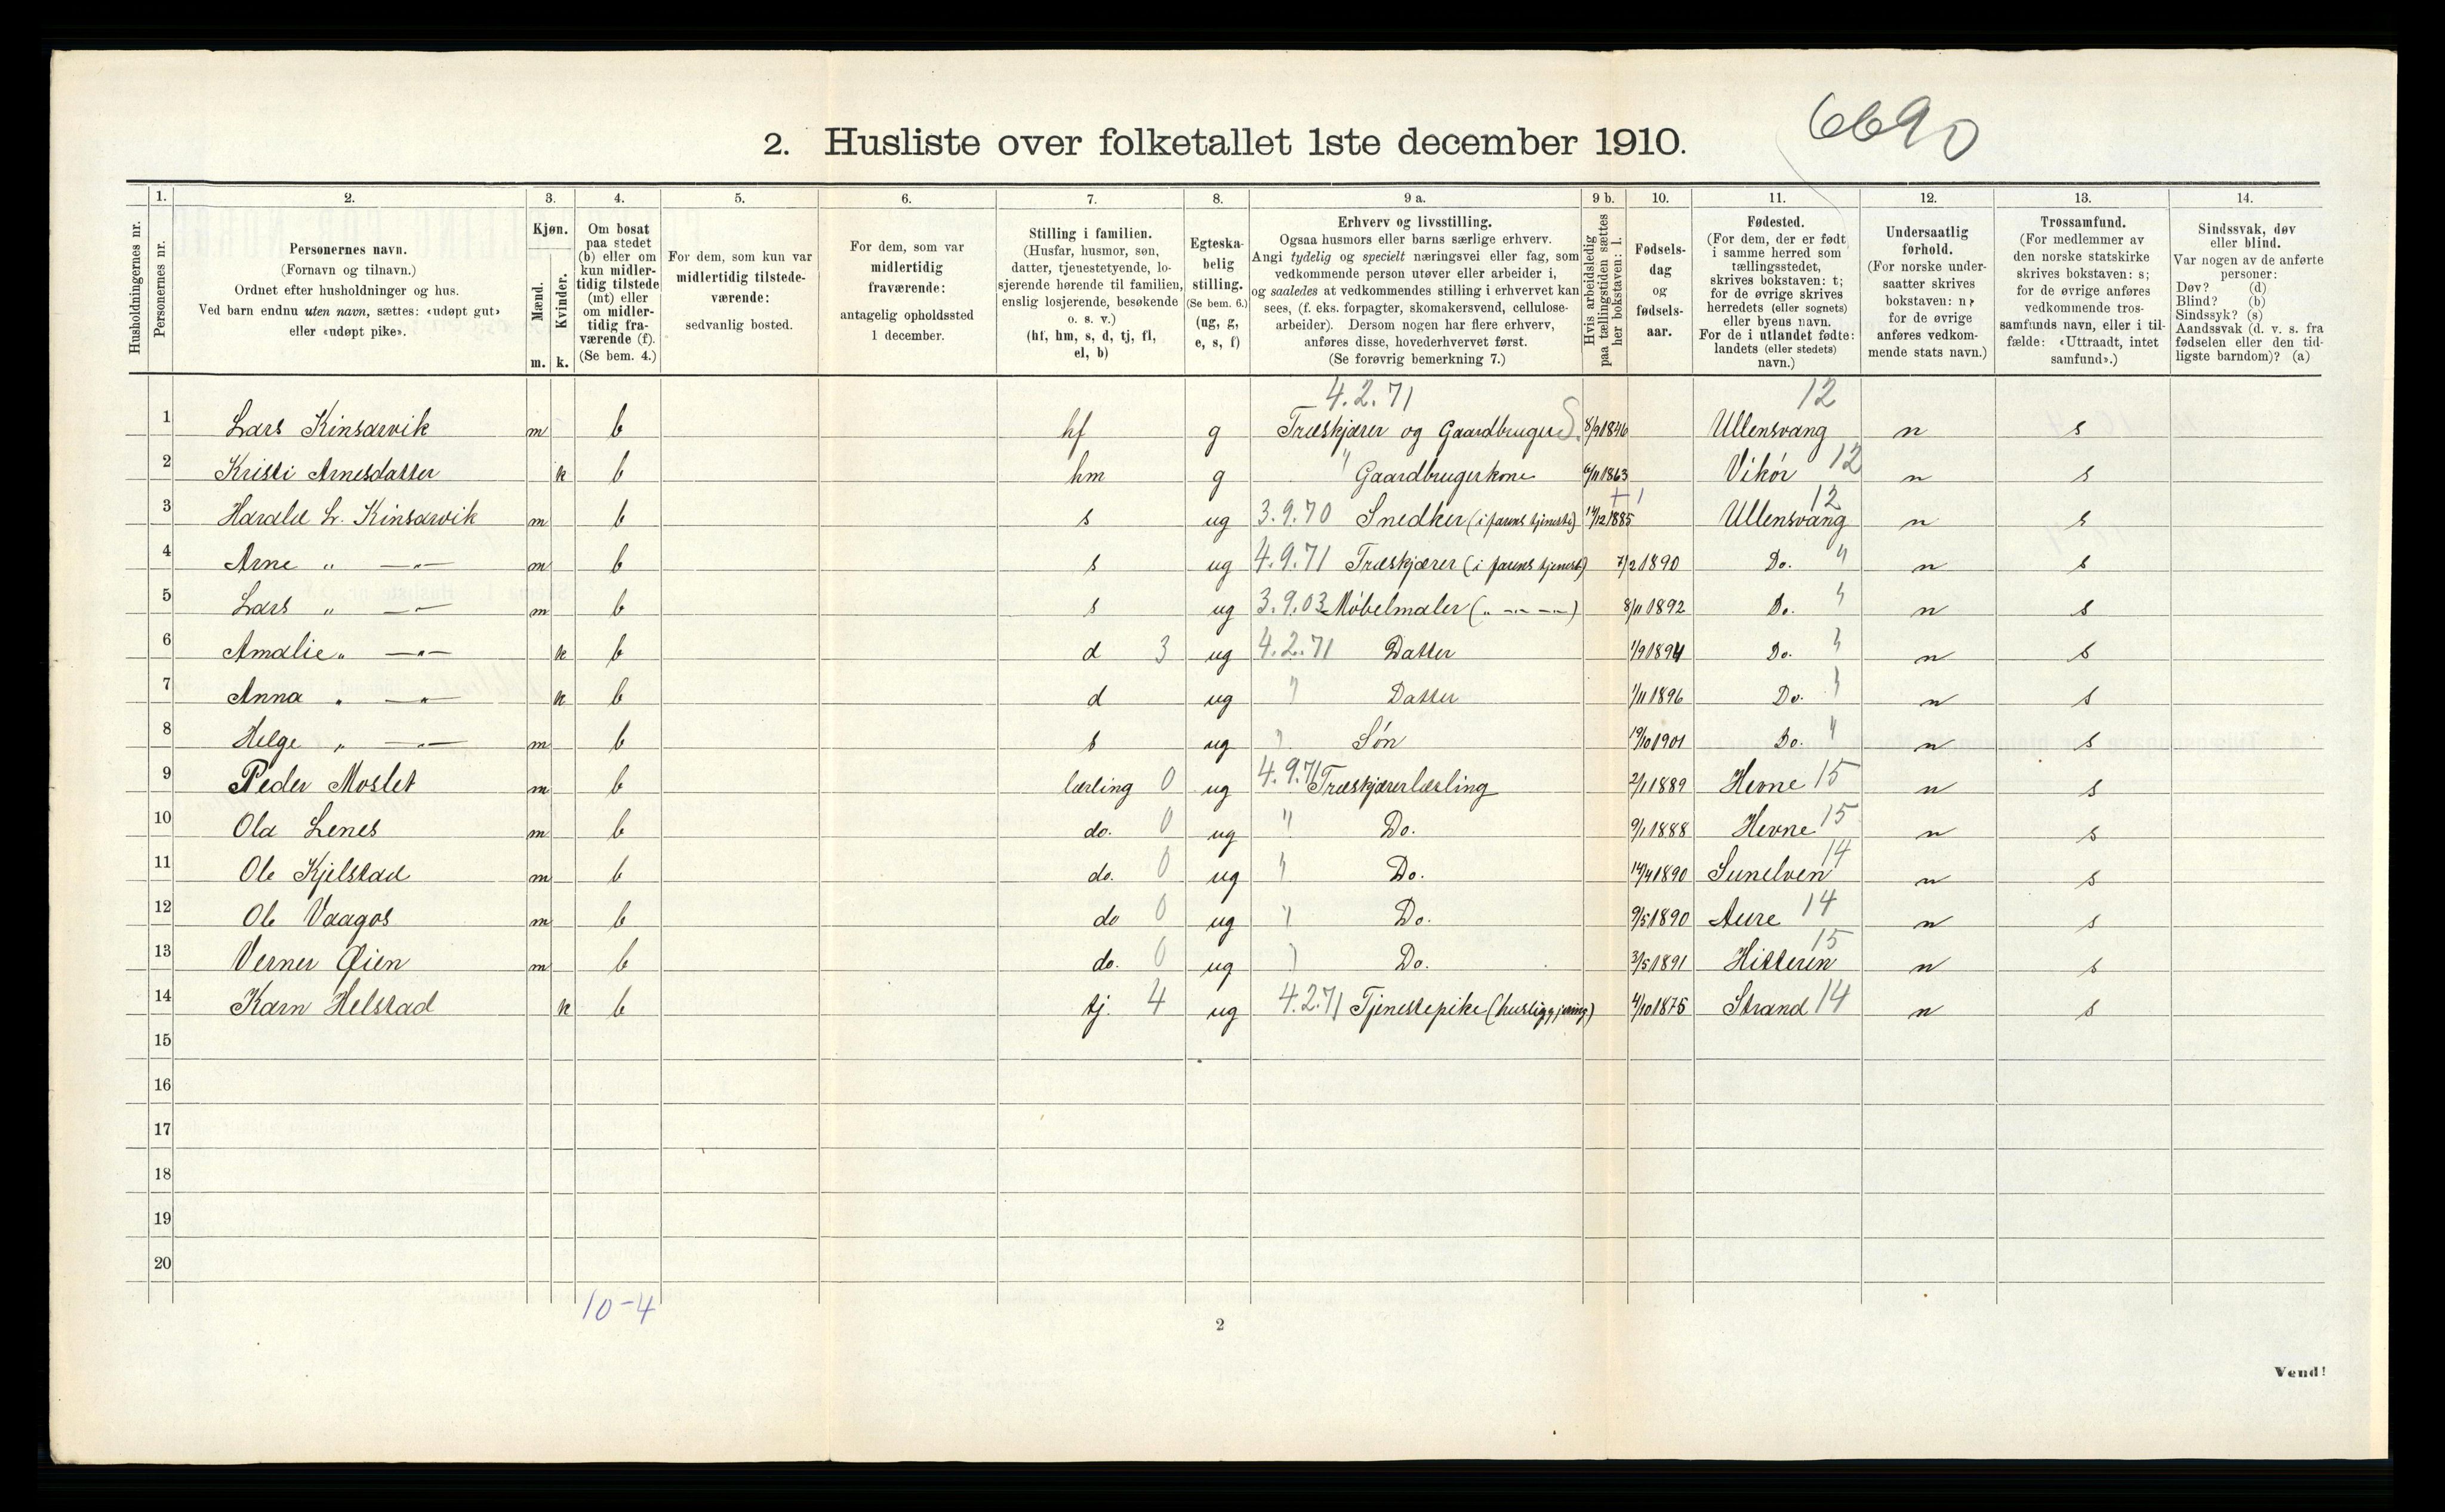 6690
2. Husliste over folketallet 1ste december 1910.
1. 2. 3. 4. 5. 6. 7. 8. 9 a. 9 b. 10. 11. 12. 13. 14.
Husholdningernes nr.
Personernes nr.
Personernes navn.
(Fornavn og tilnavn.)
Ordnet efter husholdninger og hus.
Ved barn endnu uten navn, sættes: «udøpt gut»
eller «udøpt pike».
Kjøn.
Mænd.
Kvinder.
m. k.
Om bosat
paa stedet
(b) eller om
kun midler-
tidig tilstede
(mt) eller
om midler-
tidig fra-
værende (f).
(Se bem. 4.)
For dem, som kun var
midlertidig tilstede-
værende:
sedvanlig bosted.
For dem, som var
midlertidig
fraværende:
antagelig opholdssted
1 december.
Stilling i familien.
(Husfar, husmor, søn,
datter, tjenestetyende, lo-
sjerende hørende til familien,
enslig losjerende, besøkende
o. s. v.)
(hf, hm, s, d, tj, fl,
el, b)
Egteska-
belig
stilling.
(Se bem. 6.)
(ug, g,
e, s, f)
Erhverv og livsstilling.
Ogsaa husmors eller barns særlige erhverv.
Angi tydelig og specielt næringsvei eller fag, som
vedkommende person utøver eller arbeider i,
og saaledes at vedkommendes stilling i erhvervet kan
sees, (f. eks. forpagter, skomakersvend, cellulose-
arbeider). Dersom nogen har flere erhverv,
anføres disse, hovederhvervet først.
(Se forøvrig bemerkning 7.)
Hvis arbeidsledig
paa tællingstiden sættes
her bokstaven: l.
Fødsels-
dag
og
fødsels-
aar.
Fødested.
(For dem, der er født
i samme herred som
tællingsstedet,
skrives bokstaven: t;
for de øvrige skrives
herredets (eller sognets)
eller byens navn.
For de i utlandet fødte:
landets (eller stedets)
navn.)
Undersaatlig
forhold.
(For norske under-
saatter skrives
bokstaven: n;
for de øvrige
anføres vedkom-
mende stats navn.)
Trossamfund.
(For medlemmer av
den norske statskirke
skrives bokstaven: s;
for de øvrige anføres
vedkommende tros-
samfunds navn, eller i til-
fælde: «Uttraadt, intet
samfund».)
Sindssvak, døv
eller blind.
Var nogen av de anførte
personer:
Døv? (d)
Blind? (b)
Sindssyk? (s)
Aandssvak (d. v. s. fra
fødselen eller den tid-
ligste barndom)? (a)
4.2.71 12
1 Lars Kinsarvik m b hf g Træskjærer og Gaardbruger S. 8/9 1846 Ullensvang n s
2 Kristi Arnesdatter k b hm g " Gaardbrugerkone 6/11 1863 Vikør 12 n s
3 Harald L. Kinsarvik m b s ug 3.9.70 Snedker (i farens tjeneste) 14/12 1885 Ullensvang 12 n s
4 Arne " —"— m b s ug 4.9.71 Træskjærer (i farens tjeneste) 7/2 1890 Do. " n s
5 Lars " —"— m b s ug 3.9.03 Møbelmaler (" —"— —) 8/11 1892 Do. " n s
6 Amalie " —"— k b d 3 ug 4.2.71 Datter 1/9 1894 Do. " n s
7 Anna " —"— k b d ug " Datter 1/11 1896 Do. " n s
8 Helge " —"— m b s ug " Søn 19/10 1901 Do. " n s
9 Peder Moslet m b lærling 0 ug 4.9.71 Træskjærerlærling 2/1 1889 Hevne 15 n s
10 Ola Lenes m b do. 0 ug " Do. 9/1 1888 Hevne 15 n s
11 Ole Kjelstad m b do. 0 ug " Do. 14/4 1890 Sunelven 14 n s
12 Ole Vaagos m b do 0 ug " Do. 9/5 1890 Aure 14 n s
13 Verner Øien m b do. 0 ug " Do. 3/5 1891 Hitteren 15 n s
14 Karn Helstad k b tj. 4 ug 4.2.71 Tjenestepike (husliggjøring) 4/10 1875 Strand 14 n s
15
16
17
18
19
20
10-4
2
Vend!